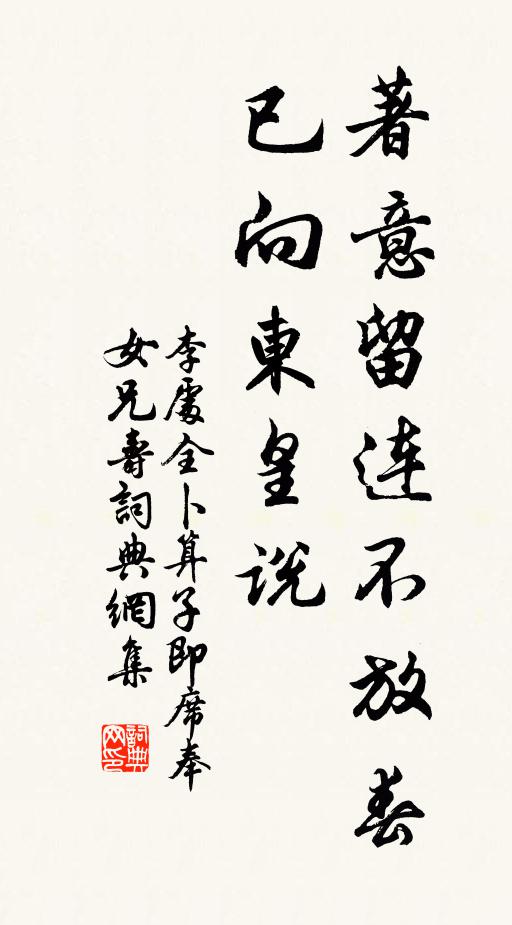 著意留連不放春
已向東皇說
李處全卜算子即席奉
女兄壽詞典網集
詞典
网印